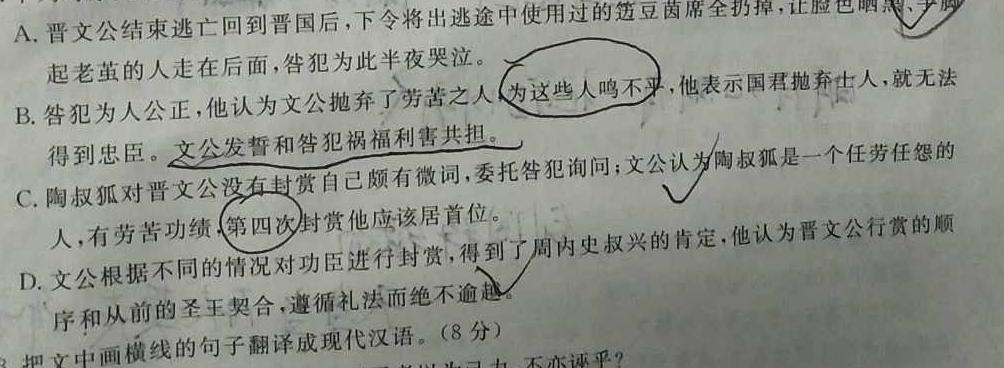 A. 晋文公结束逃亡回到晋国后,下令将出逃途中使用过的笾豆茵席全扔掉,让脸色晒黑、手脚
起老茧的人走在后面,咎犯为此半夜哭泣。
B. 咎犯为人公正,他认为文公抛弃了劳苦之人,为这些人鸣不平,他表示国君抛弃士人,就无法
得到忠臣。文公发誓和咎犯祸福利害共担。
C. 陶叔狐对晋文公没有封赏自己颇有微词,委托咎犯询问;文公认为陶叔狐是一个任劳任怨的
人,有劳苦功绩,第四次封赏他应该居首位。
D. 文公根据不同的情况对功臣进行封赏,得到了周内史叔兴的肯定,他认为晋文公行赏的顺
序和从前的圣王契合,遵循礼法而绝不逾越。
把文中画横线的句子翻译成现代汉语。(8 分)
不亦诬乎?